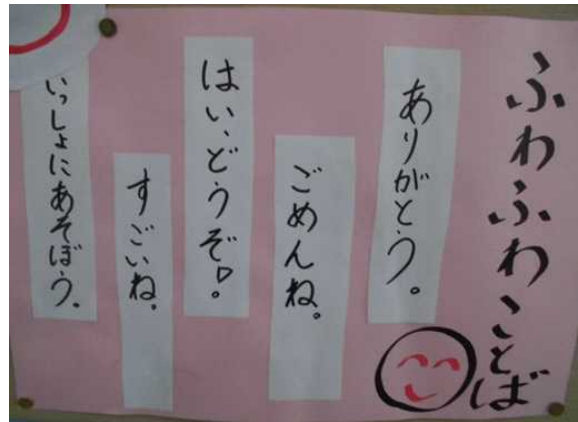 ふわふわことば
ありがとう。
ごめんね。
はい、どうぞ!
すごいね。
いっしょにあそぼう。